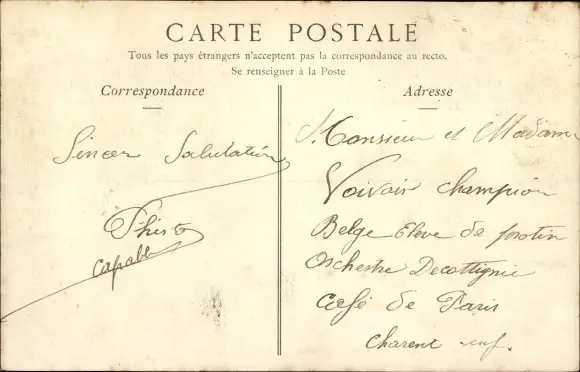 CARTE POSTALE
Tous les pays étrangers n'acceptent pas la correspondance au recto.
Se renseigner à la Poste
Correspondance
Sincer Salutation
capable
Adresse
Monsieur et Madame
Voivair champion
Belge Eleve de
Orchestre Decottignie
Café de Paris
Charen neuf.